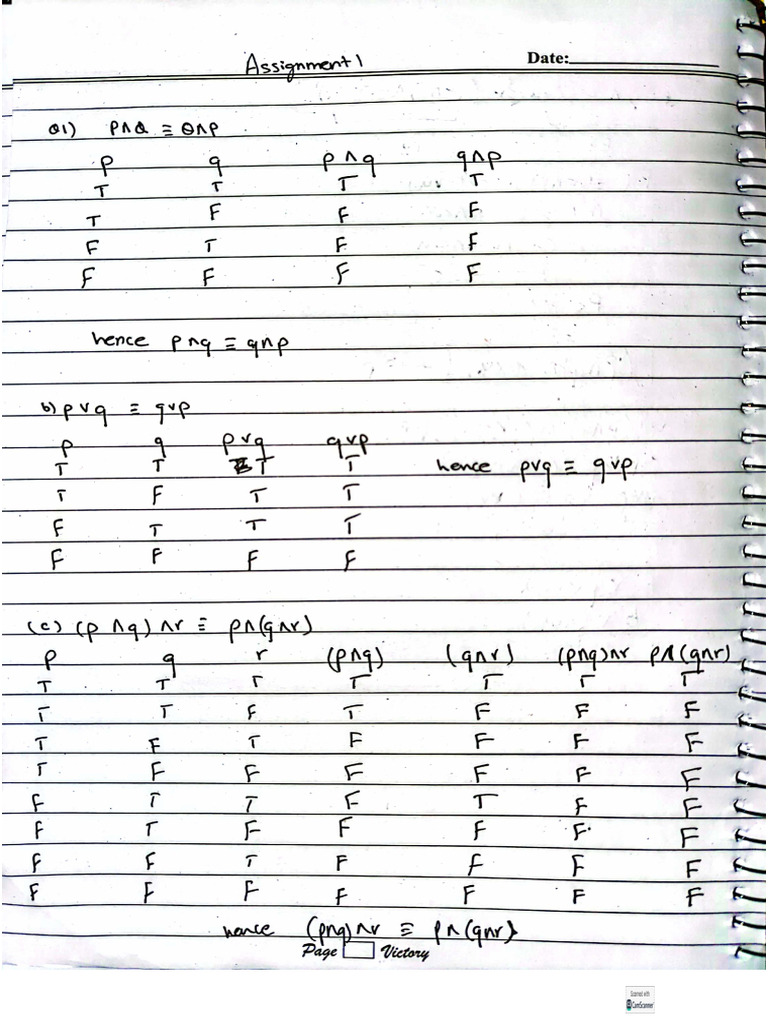 Assignment 1 Date:
Q1) P∧Q ≡ Q∧P
p q p∧q q∧p
T T T T
T F F F
F T F F
F F F F
hence p∧q ≡ q∧p
b) p∨q ≡ q∨p
p q p∨q q∨p
T T T T hence p∨q ≡ q∨p
T F T T
F T T T
F F F F
(c) (p∧q)∧r ≡ p∧(q∧r)
p q r (p∧q) (q∧r) (p∧q)∧r p∧(q∧r)
T T T T T T T
T T F T F F F
T F T F F F F
T F F F F F F
F T T F T F F
F T F F F F F
F F T F F F F
F F F F F F F
hence (p∧q)∧r ≡ p∧(q∧r)
Page Victory
Scanned with
CamScanner